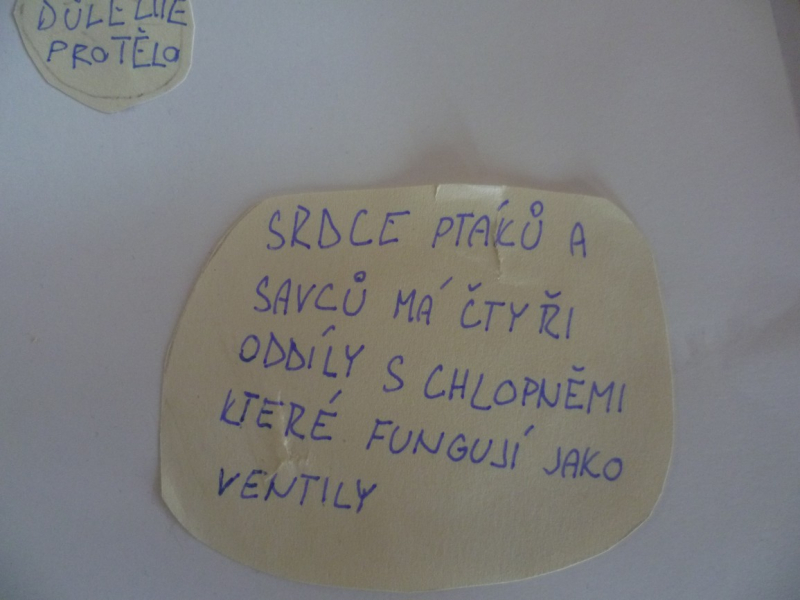 DŮLEŽITÉ
PRO TĚLO
SRDCE PTÁKŮ A
SAVCŮ MÁ ČTYŘI
ODDÍLY S CHLOPNĚMI
KTERÉ FUNGUJÍ JAKO
VENTILY